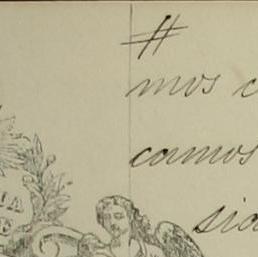 #
mos c
camos
sia